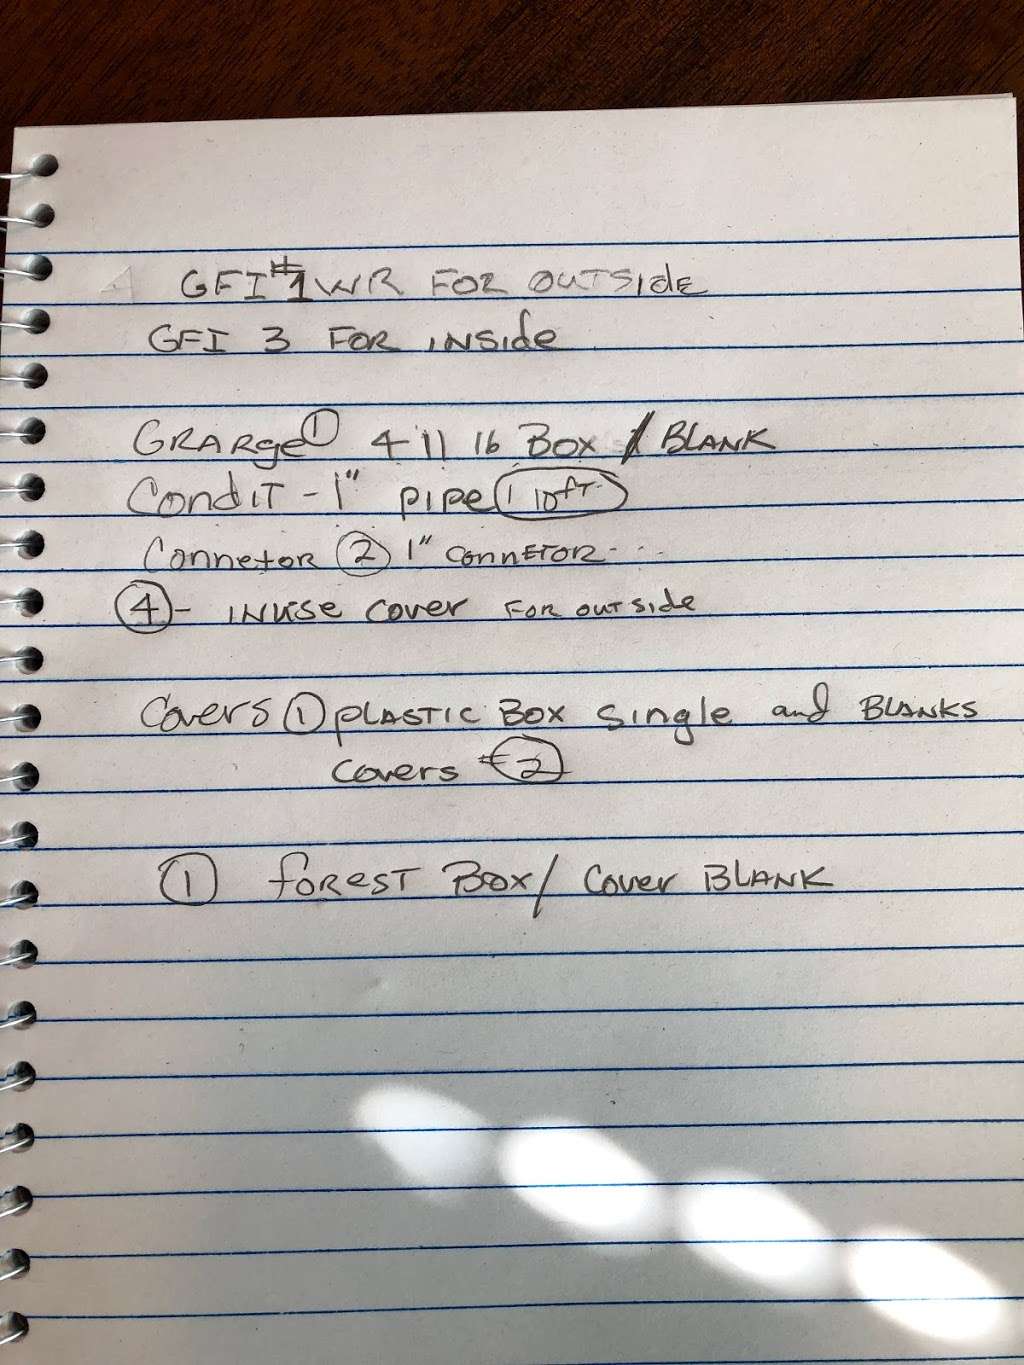 GFI #1 WR FOR OUTSIDE
GFI 3 FOR INSIDE
GRARGE ① 4 11 16 BOX / BLANK
CONDIT - 1" PIPE 1 10FT.
CONNETOR ② 1" CONNETOR - . . .
④ - INUSE COVER FOR OUTSIDE
COVERS ① PLASTIC BOX SINGLE and BLANKS
COVERS #②
① FOREST BOX / COVER BLANK